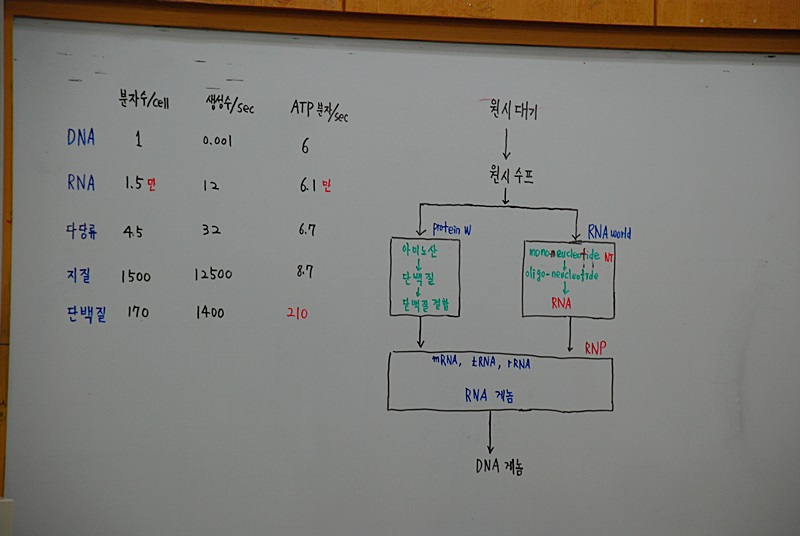 분자수/cell 생성수/sec ATP 분자/sec
DNA 1 0.001 6
RNA 1.5만 12 6.1만
다당류 4.5 32 6.7
지질 1500 12500 8.7
단백질 170 1400 210
원시대기
원시수프
protein W
아미노산
단백질
단백질 결합
RNA world
mono-neucleotide NT
oligo-neucleotide
RNA
RNP
mRNA, tRNA, rRNA
RNA 게놈
DNA 게놈